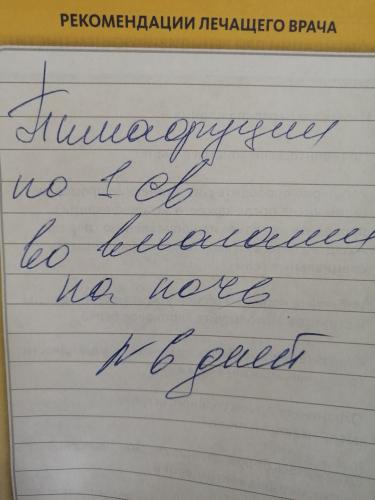 РЕКОМЕНДАЦИИ ЛЕЧАЩЕГО ВРАЧА
Пимафуцин
по 1 св
во влагалище
на ночь
N 6 дней